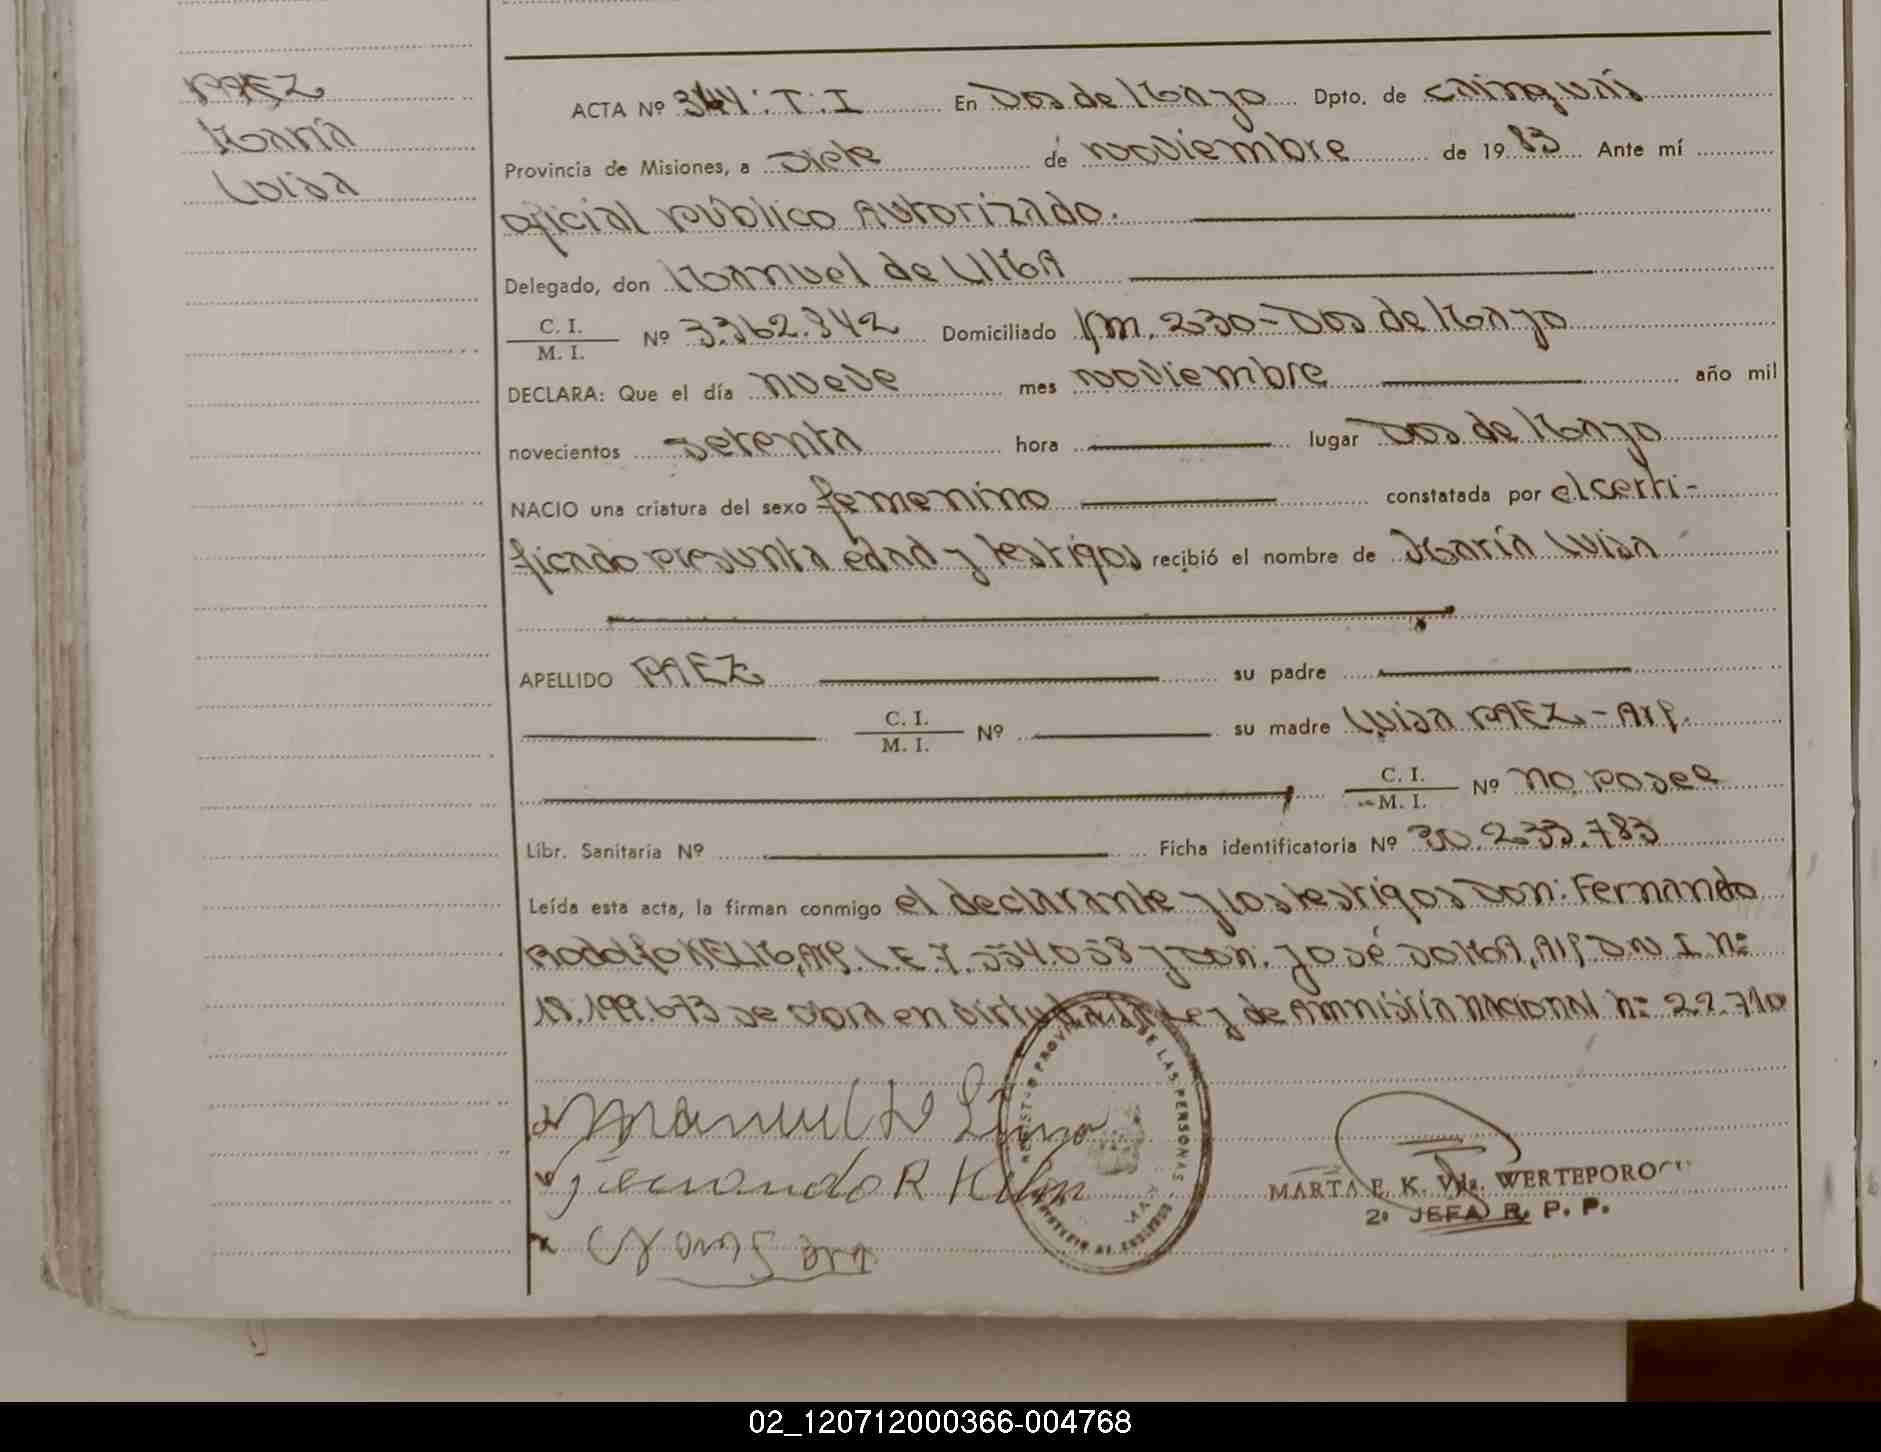 PAEZ
María
Luisa
ACTA Nº 344: T: I En Dos de Mayo Dpto. de Cainguás
Provincia de Misiones, a siete de noviembre de 1983 Ante mí
oficial público Autorizado.
Delegado, don Manuel de LIMA
C. I.
M. I.
Nº 3.362.342 Domiciliado Km. 230-Dos de Mayo
DECLARA: Que el día nueve mes noviembre año mil
novecientos setenta hora lugar Dos de Mayo
NACIO una criatura del sexo femenino constatada por el certi-
ficado presunta edad y testigos recibió el nombre de María Luisa
APELLIDO PAEZ su padre
C. I.
M. I.
Nº su madre Luisa PAEZ - Arg.
C. I.
M. I.
Nº no posee
Libr. Sanitaria Nº Ficha identificatoria Nº 30.233.783
Leída esta acta, la firman conmigo el declarante y los testigos Don: Fernando
Rodolfo Arg. L.E. 7.554.058 y Don: José Arg. D.N.I. Nº:
18.199.673 se labra en virtud a la Ley de Amnistía Nacional nº 22.710
Manuel de Lima
Fernando R
REGISTRO PROVINCIAL DE LAS PERSONAS
MARTA E. K. Vda. WERTEPORO
2º JEFA R. P. P.
02_120712000366-004768